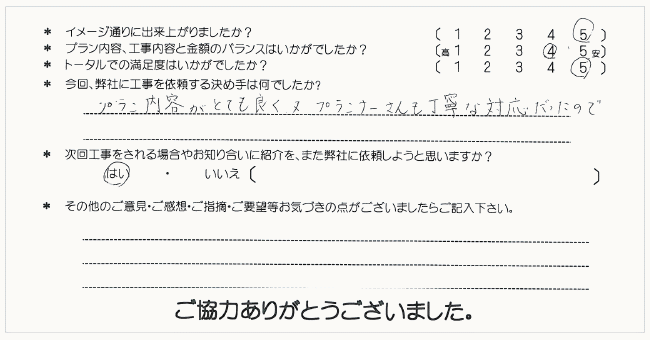 * イメージ通りに出来上がりましたか? ( 1 2 3 4 5 )
* プラン内容、工事内容と金額のバランスはいかがでしたか? (高 1 2 3 4 5 安)
* トータルでの満足度はいかがでしたか? ( 1 2 3 4 5 )
* 今回、弊社に工事を依頼する決め手は何でしたか?
プラン内容がとても良く又プランナーさんも丁寧な対応だったので
* 次回工事をされる場合やお知り合いに紹介を、また弊社に依頼しようと思いますか?
はい ・ いいえ ( )
* その他のご意見・ご感想・ご指摘・ご要望等お気づきの点がございましたらご記入下さい。
ご協力ありがとうございました。